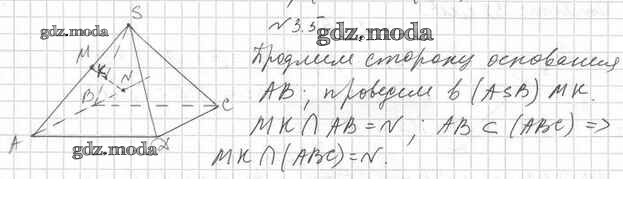 №3.5
Продлим сторону основания
AB; проведем в (ASB) MK.
MK ∩ AB = N; AB ⊂ (ABC) =>
MK ∩ (ABC) = N.
S
M
K
N
B
C
A
D
gdz.moda
gdz.moda
gdz.moda